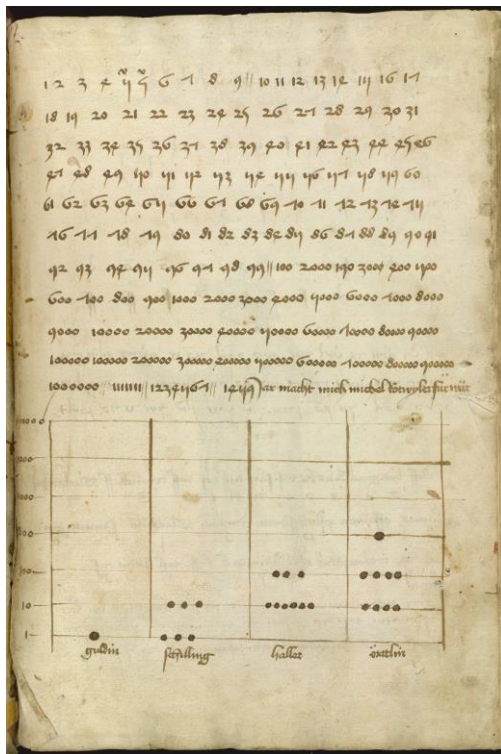 1 2 3 4 5 5 6 7 8 9 // 10 11 12 13 14 15 16 17
18 19 20 21 22 23 24 25 26 27 28 29 30 31
32 33 34 35 36 37 38 39 40 41 42 43 44 45 46
47 48 49 50 51 52 53 54 55 56 57 58 59 60
61 62 63 64 65 66 67 68 69 70 71 72 73 74 75
76 77 78 79 80 81 82 83 84 85 86 87 88 89 90 91
92 93 94 95 96 97 98 99 // 100 400 500
600 700 800 900 1000 2000 3000 4000 5000 6000 7000 8000
9000 10000 20000 30000 40000 50000 60000 70000 80000 90000
100000 100000 200000 300000 400000 500000 600000 700000 800000 900000
1000000 // 1234567 // macht mich michel
10
1
guldin schilling haller örtlin